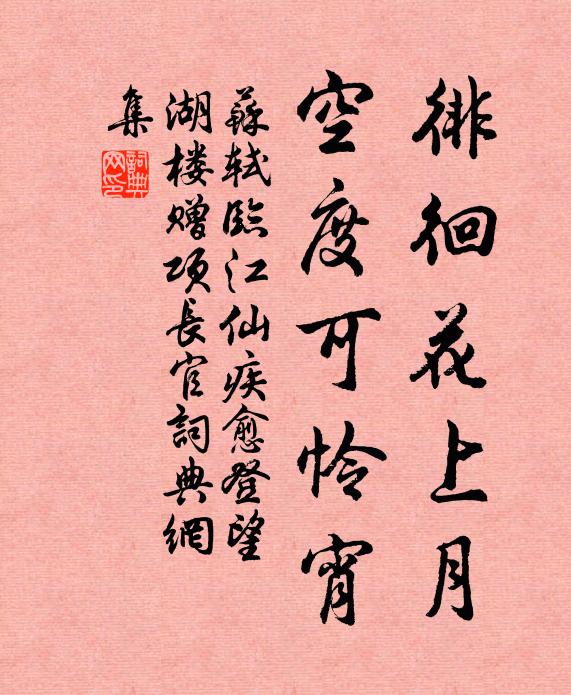 徘徊花上月
空度可怜宵
蘇軾臨江仙疾愈登望
湖楼赠项長官詞典網
集
詞典
网印